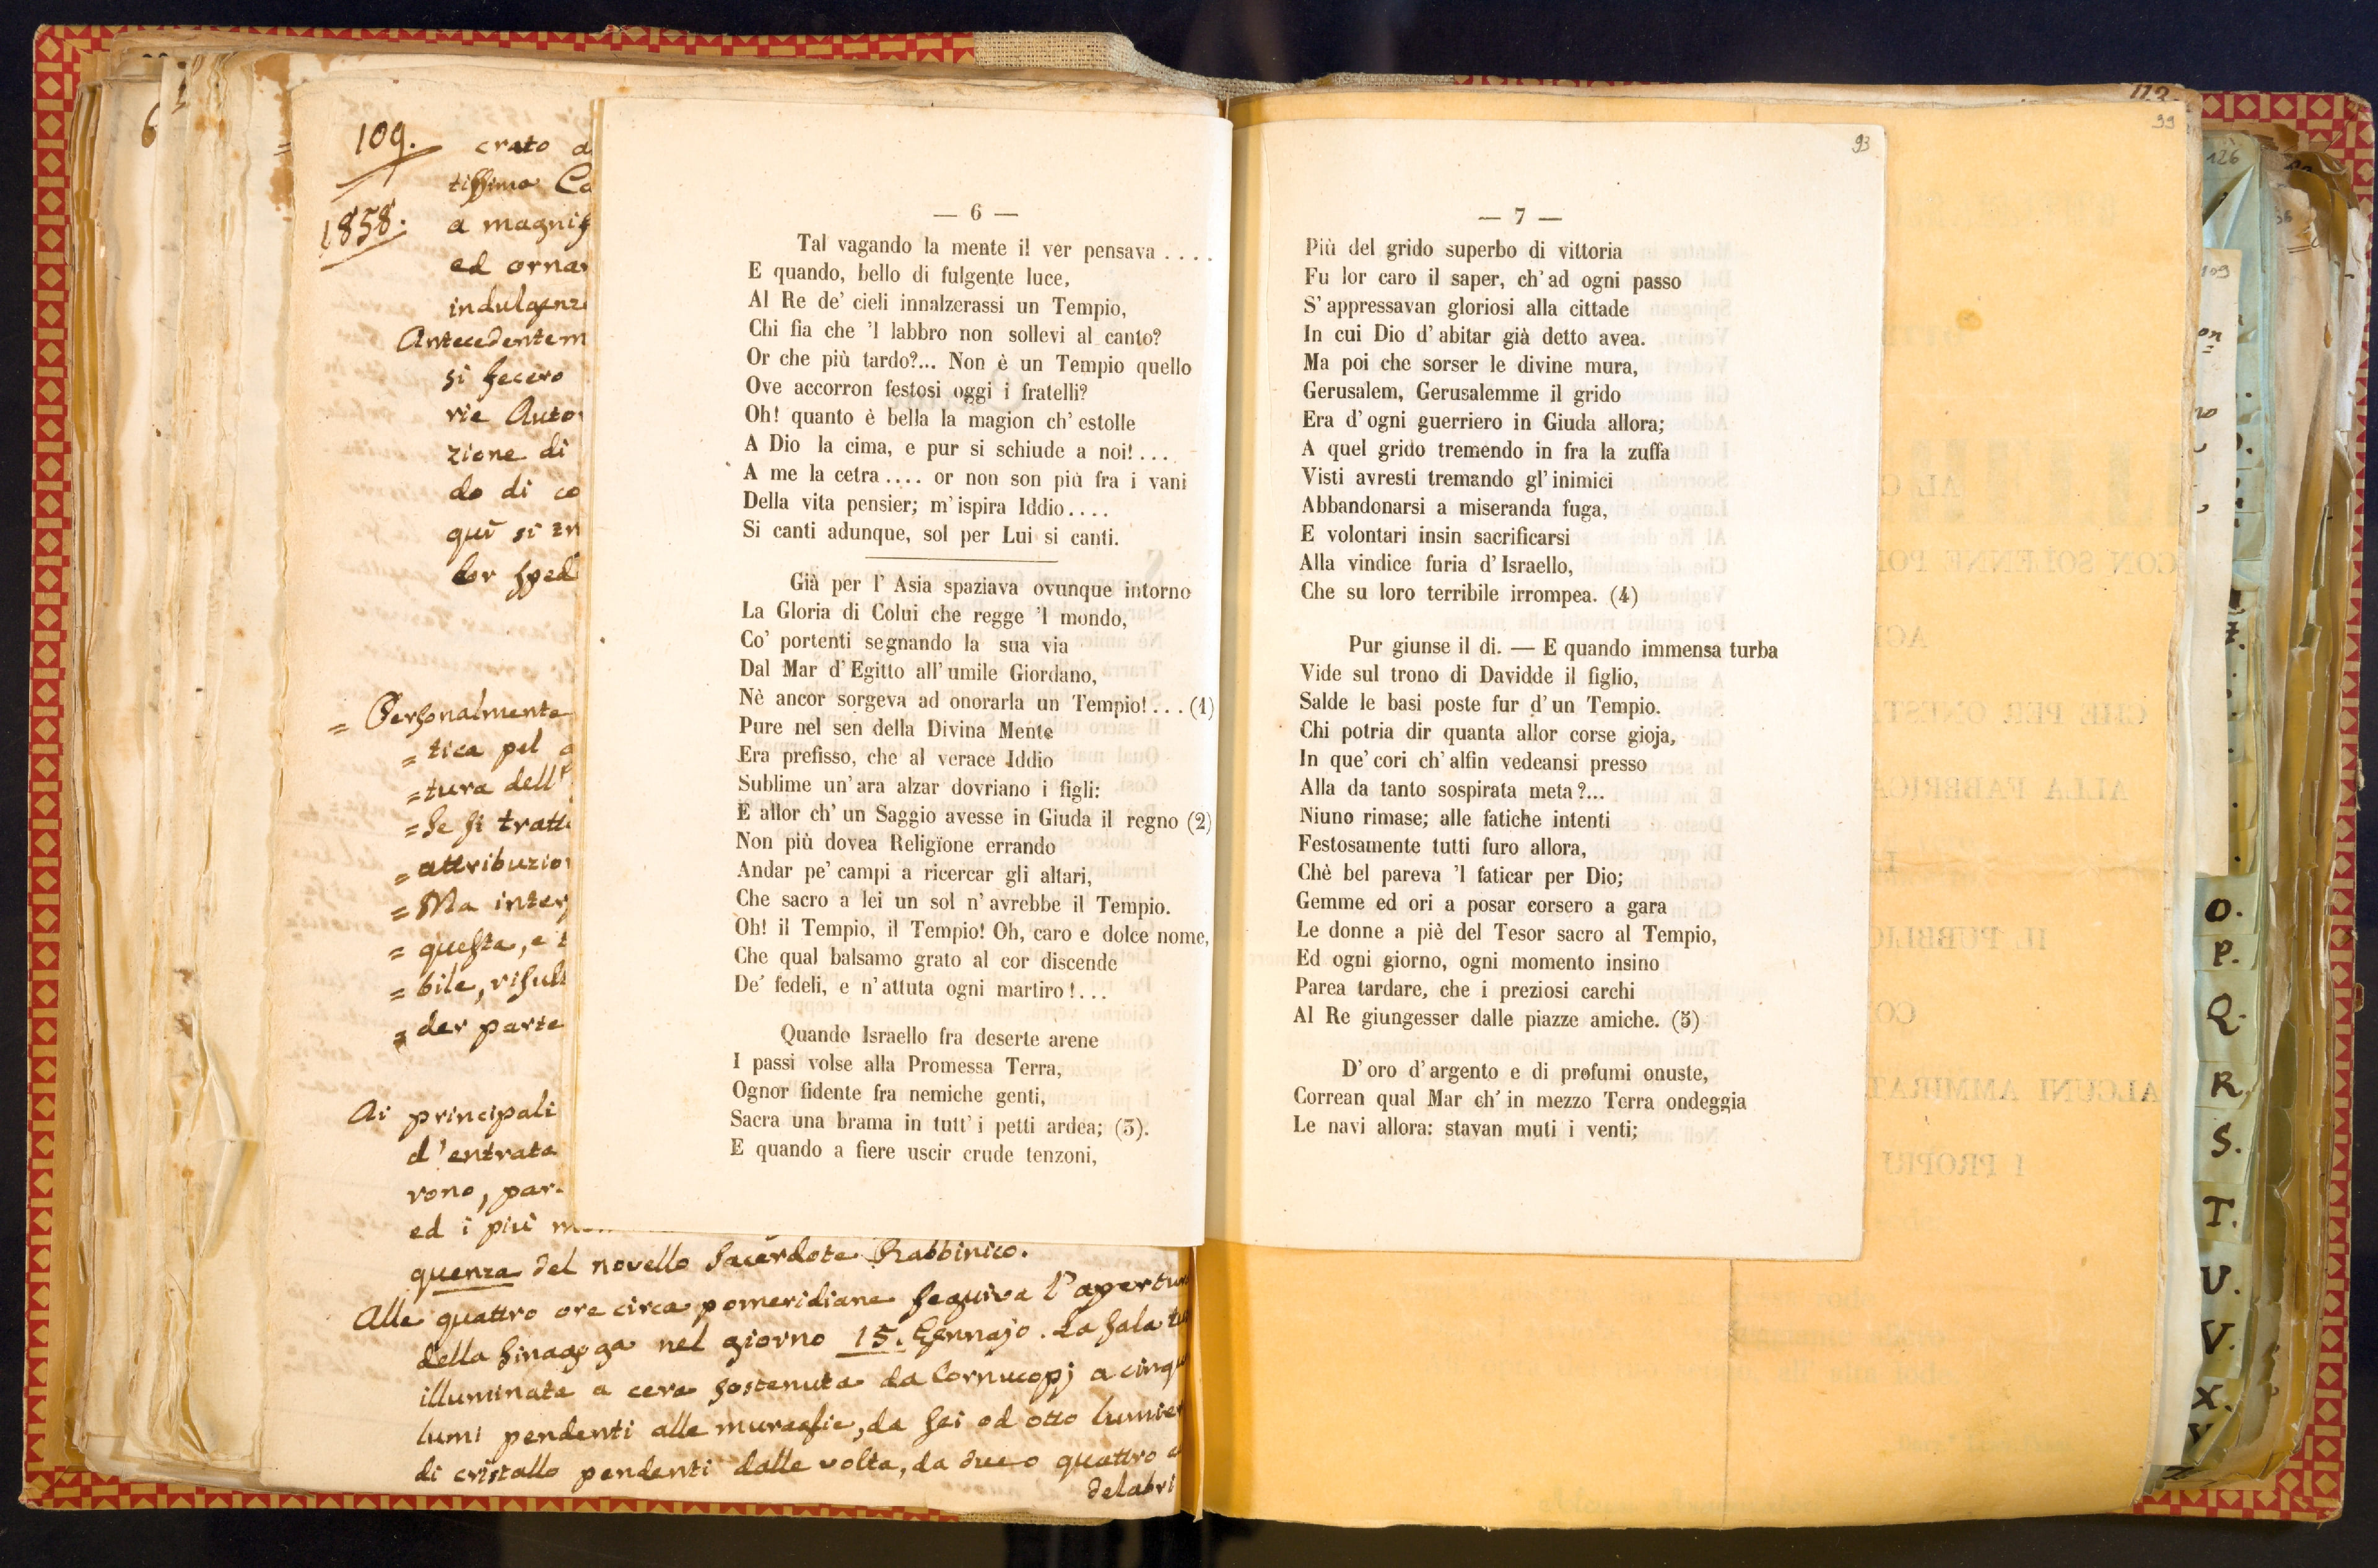 109.
1858.
crato
tissimo
a magnif
ed ornar
indulgenz
Antecedentem
si fecero
rie Auto
zione di
do di co
quì si in
lor sped
= Personalmente
= tica pel
= tura dell'
= se si tratt
= attribuzio
= Ma inter
= questa, e
= bile, risul
= der parte
Ai principali
d'entrata
rono, par
ed i più
quenza del novello Sacerdote Rabbinico.
Alle quattro ore circa pomeridiane seguiva l'apertur
della Sinagoga nel giorno 15. Gennajo. La Sala
illuminata a cera sostenuta da Cornucopj a cinqu
lumi pendenti alle muraglie, da sei ed otto lumier
di cristallo pendenti dalle volta, da due o quattro
delabri
— 6 —
Tal vagando la mente il ver pensava ....
E quando, bello di fulgente luce,
Al Re de' cieli innalzerassi un Tempio,
Chi fia che 'l labbro non sollevi al canto?
Or che più tardo?... Non è un Tempio quello
Ove accorron festosi oggi i fratelli?
Oh! quanto è bella la magion ch' estolle
A Dio la cima, e pur si schiude a noi!....
A me la cetra.... or non son più fra i vani
Della vita pensier; m' ispira Iddio....
Si canti adunque, sol per Lui si canti.
Già per l' Asia spaziava ovunque intorno
La Gloria di Colui che regge 'l mondo,
Co' portenti segnando la sua via
Dal Mar d' Egitto all' umile Giordano,
Nè ancor sorgeva ad onorarla un Tempio!... (1)
Pure nel sen della Divina Mente
Era prefisso, che al verace Iddio
Sublime un' ara alzar dovriano i figli:
E allor ch' un Saggio avesse in Giuda il regno (2)
Non più dovea Religïone errando
Andar pe' campi a ricercar gli altari,
Che sacro a lei un sol n' avrebbe il Tempio.
Oh! il Tempio, il Tempio! Oh, caro e dolce nome,
Che qual balsamo grato al cor discende
De' fedeli, e n' attuta ogni martiro!...
Quando Israello fra deserte arene
I passi volse alla Promessa Terra,
Ognor fidente fra nemiche genti,
Sacra una brama in tutt' i petti ardea; (3).
E quando a fiere uscir crude tenzoni,
93
— 7 —
Più del grido superbo di vittoria
Fu lor caro il saper, ch' ad ogni passo
S' appressavan gloriosi alla cittade
In cui Dio d' abitar già detto avea.
Ma poi che sorser le divine mura,
Gerusalem, Gerusalemme il grido
Era d' ogni guerriero in Giuda allora;
A quel grido tremendo in fra la zuffa
Visti avresti tremando gl' inimici
Abbandonarsi a miseranda fuga,
E volontari insin sacrificarsi
Alla vindice furia d' Israello,
Che su loro terribile irrompea. (4)
Pur giunse il di. — E quando immensa turba
Vide sul trono di Davidde il figlio,
Salde le basi poste fur d' un Tempio.
Chi potria dir quanta allor corse gioja,
In que' cori ch' alfin vedeansi presso
Alla da tanto sospirata meta?...
Niuno rimase; alle fatiche intenti
Festosamente tutti furo allora,
Chè bel pareva 'l faticar per Dio;
Gemme ed ori a posar corsero a gara
Le donne a piè del Tesor sacro al Tempio,
Ed ogni giorno, ogni momento insino
Parea tardare, che i preziosi carchi
Al Re giungesser dalle piazze amiche. (5)
D' oro d' argento e di profumi onuste,
Correan qual Mar ch' in mezzo Terra ondeggia
Le navi allora: stavan muti i venti;
99
113
126
109
O.
P.
Q.
R.
S.
T.
U.
V.
X.